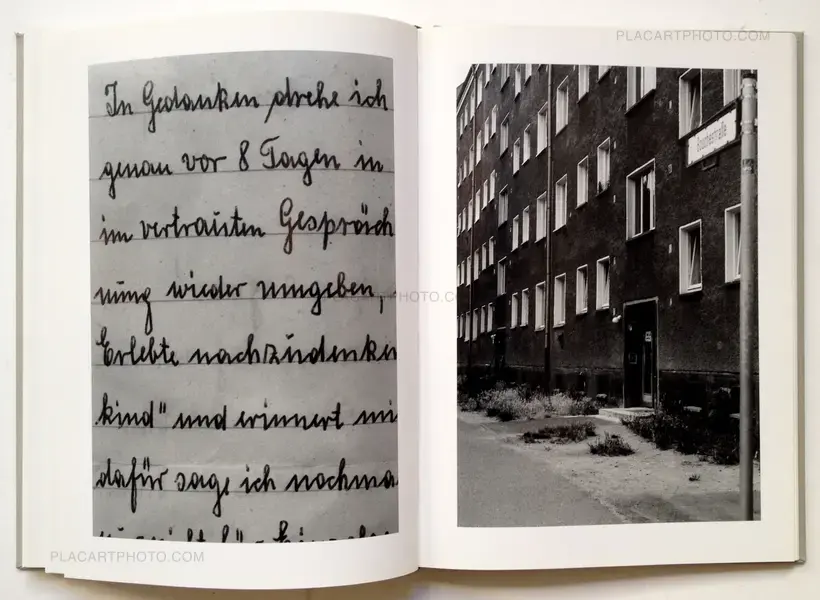 PLACARTPHOTO.COM
In Gedanken drehe ich
genau vor 8 Tagen in
im vertrauten Gespräch
nung wieder umgeben,
Erlebte nachzudenken
kind" und erinnert mi
dafür sage ich nochma
Bouchéstraße
PLACARTPHOTO.COM